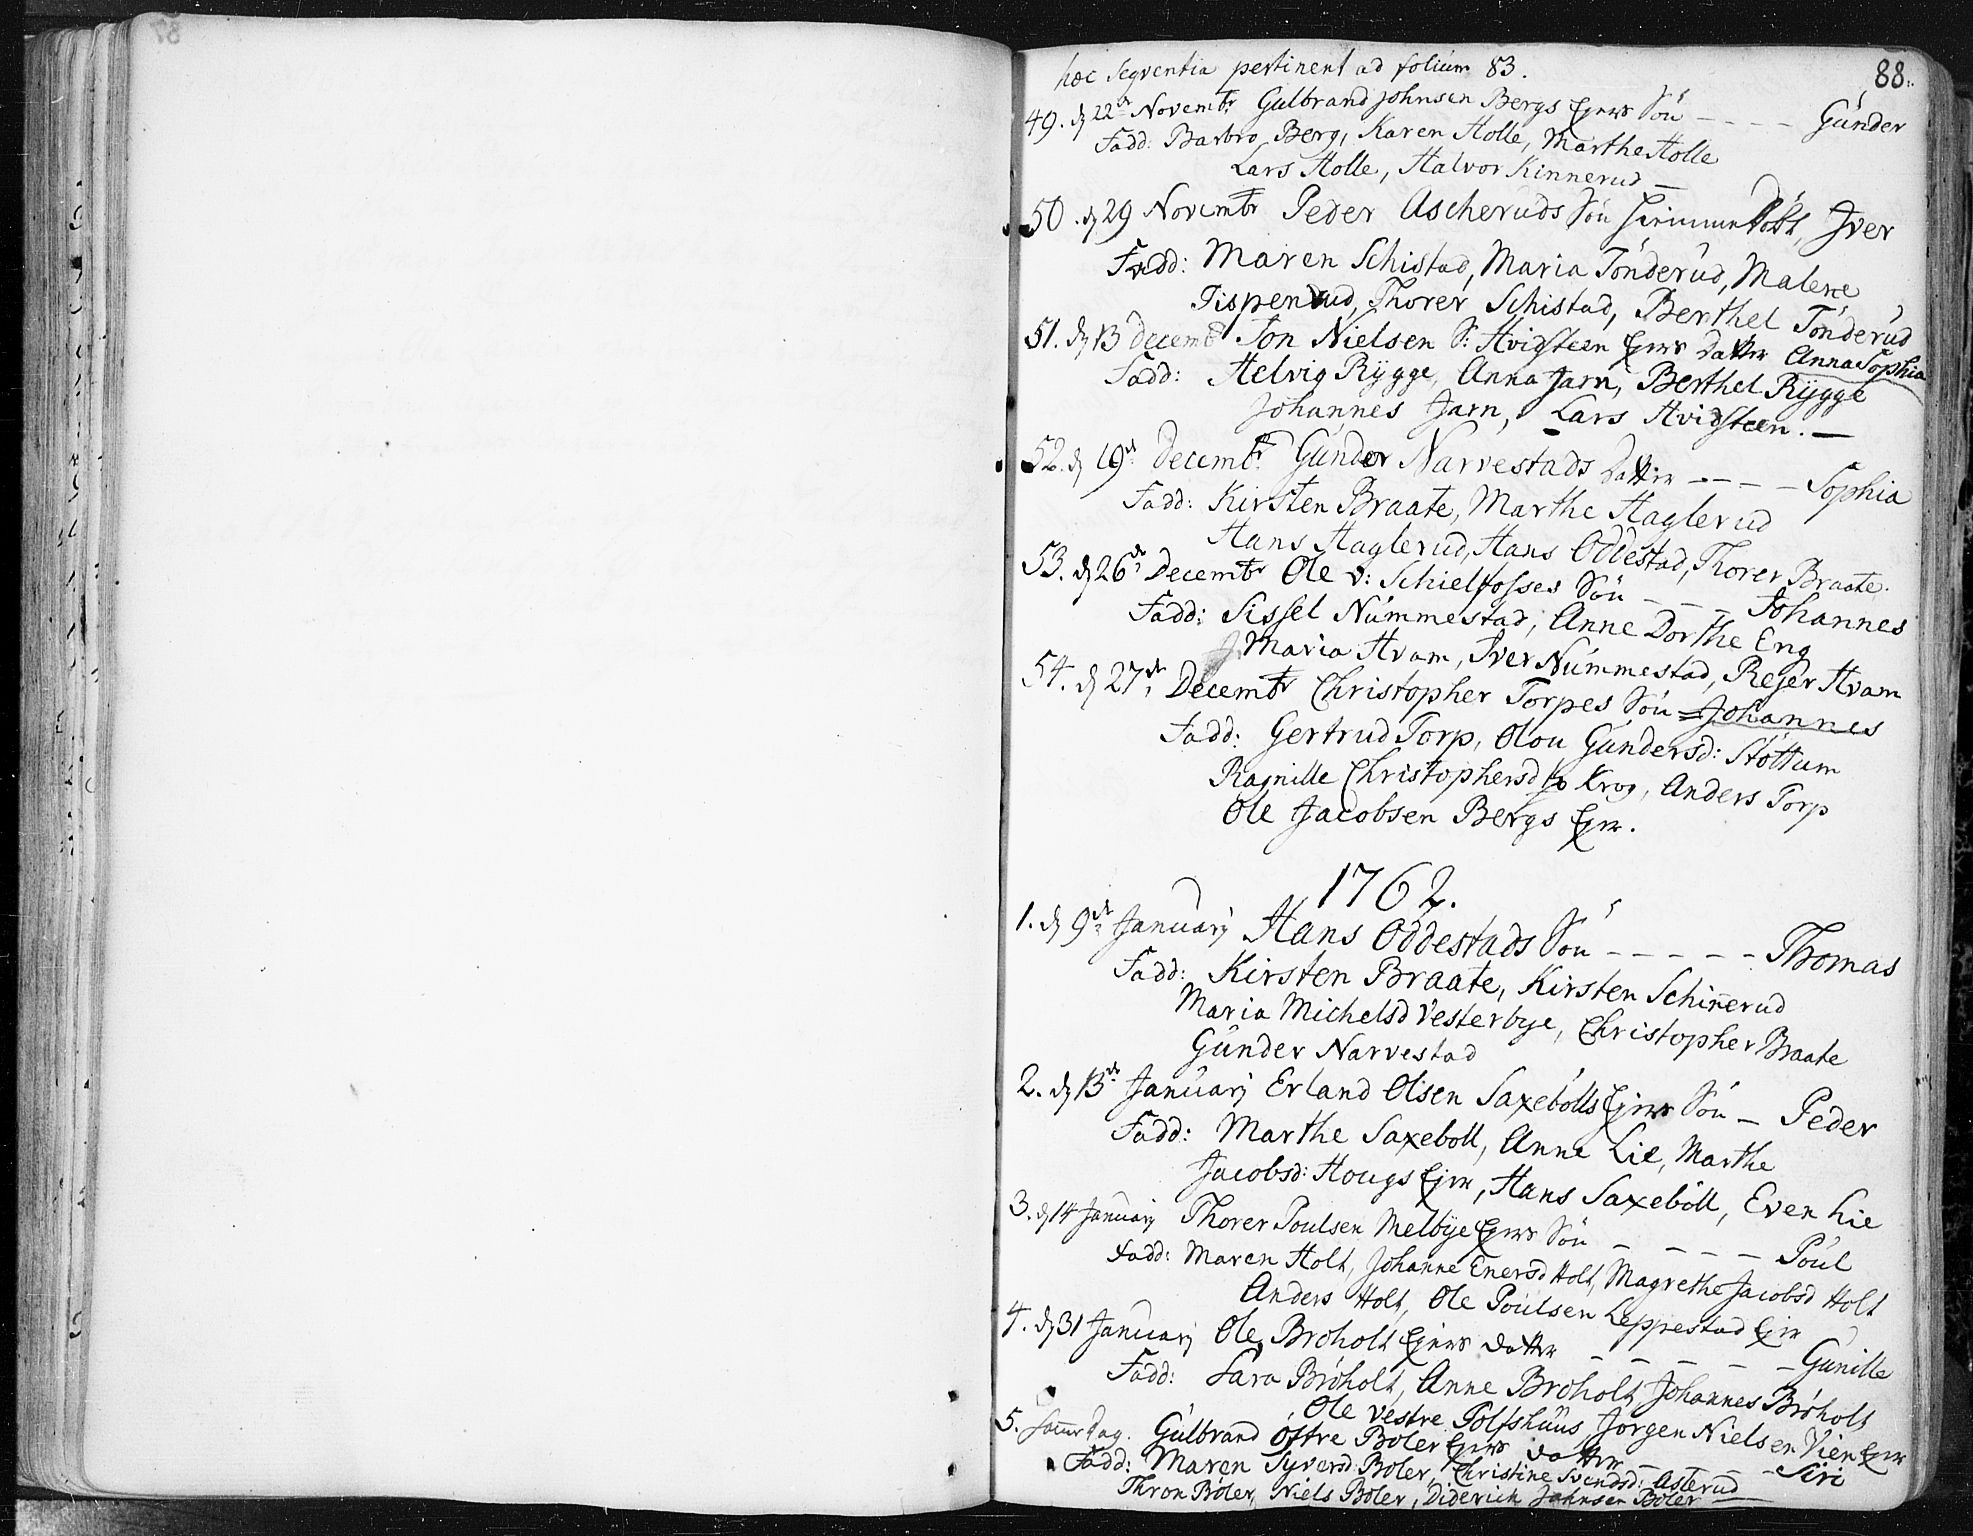 hæc seqventia pertinent ad folium 83.
88.
49. d 22de Novembr Gulbrand Johnsen Bergs Ejers Sön - - - - Gunder
Fadd: Barbro Berg, Karen Holle, Marthe Holle
Lars Holle, Halvor Kinnerud -
50. d 29 Novembr Peder Ascheruds Sön hiemmedöbt, Iver
Fadd: Maren Schistad, Maria Tönderud, Malene
Tispenrud, Thorer Schistad, Berthel Tönderud
51. d 13 Decembr Jon Nielsen S: Hvidsteen Ejers Datter Anna Sophia
Fadd: Helvig Rygge, Anna Jarn, Berthel Rygge
Johannes Jarn, Lars Hvidsteen. -
52. d 19de Decembr Gunder Narvestads Datter - - - - Sophia
Fadd: Kirsten Braate, Marthe Haglerud
Hans Haglerud, Hans Oddestad, Thorer Braate.
53. d 26de Decembr Ole v: Schielfosses Sön - - - Johannes
Fadd: Sissel Nummestad, Anne Dorthe Eng
Maria Hvam, Iver Nummestad, Rejer Hvam
54. d 27de Decembr Christopher Torpes Sön - Johannes
Fadd: Gertrud Torp, Olou Gundersd: Stöttum
Ragnille Christophersd Krog, Anders Torp
Ole Jacobsen Bergs Ejer.
1762.
1. d 9de Januarj Hans Oddestads Sön - - - - - Thomas
Fadd: Kirsten Braate, Kirsten Schinnerud
Maria Michelsd Vesterbye, Christopher Braate
Gunder Narvestad
2. d 13de Januarj Erland Olsen Saxebölls Ejers Sön - Peder
Fadd: Marthe Saxeböll, Anne Lie, Marthe
Jacobsd: Hougs Ejer, Hans Saxeböll, Even Lie
3. d 14 Januarj Thorer Poulsen Melbye Ejers Sön - - - - Poul
Fadd: Maren Holt, Johanne Enersd Holt, Magrethe Jacobsd Holt
Anders Holt, Ole Poulsen Leppestad Ejer
4. d 31 Januarj Ole Bröholt Ejers Datter - - - - - Gunille
Fadd: Sara Bröholt, Anne Bröholt, Johannes Bröholt
Ole Vestre Polfshuus, Jörgen Nielsen Vien Ejer
5. Gulbrand östre Böler Ejers Datter - - - - Siri
Fadd: Maren Syversd: Böler, Christine Svendsd: Asterud
Thron Böler, Niels Böler, Diderich Johnsen Böler